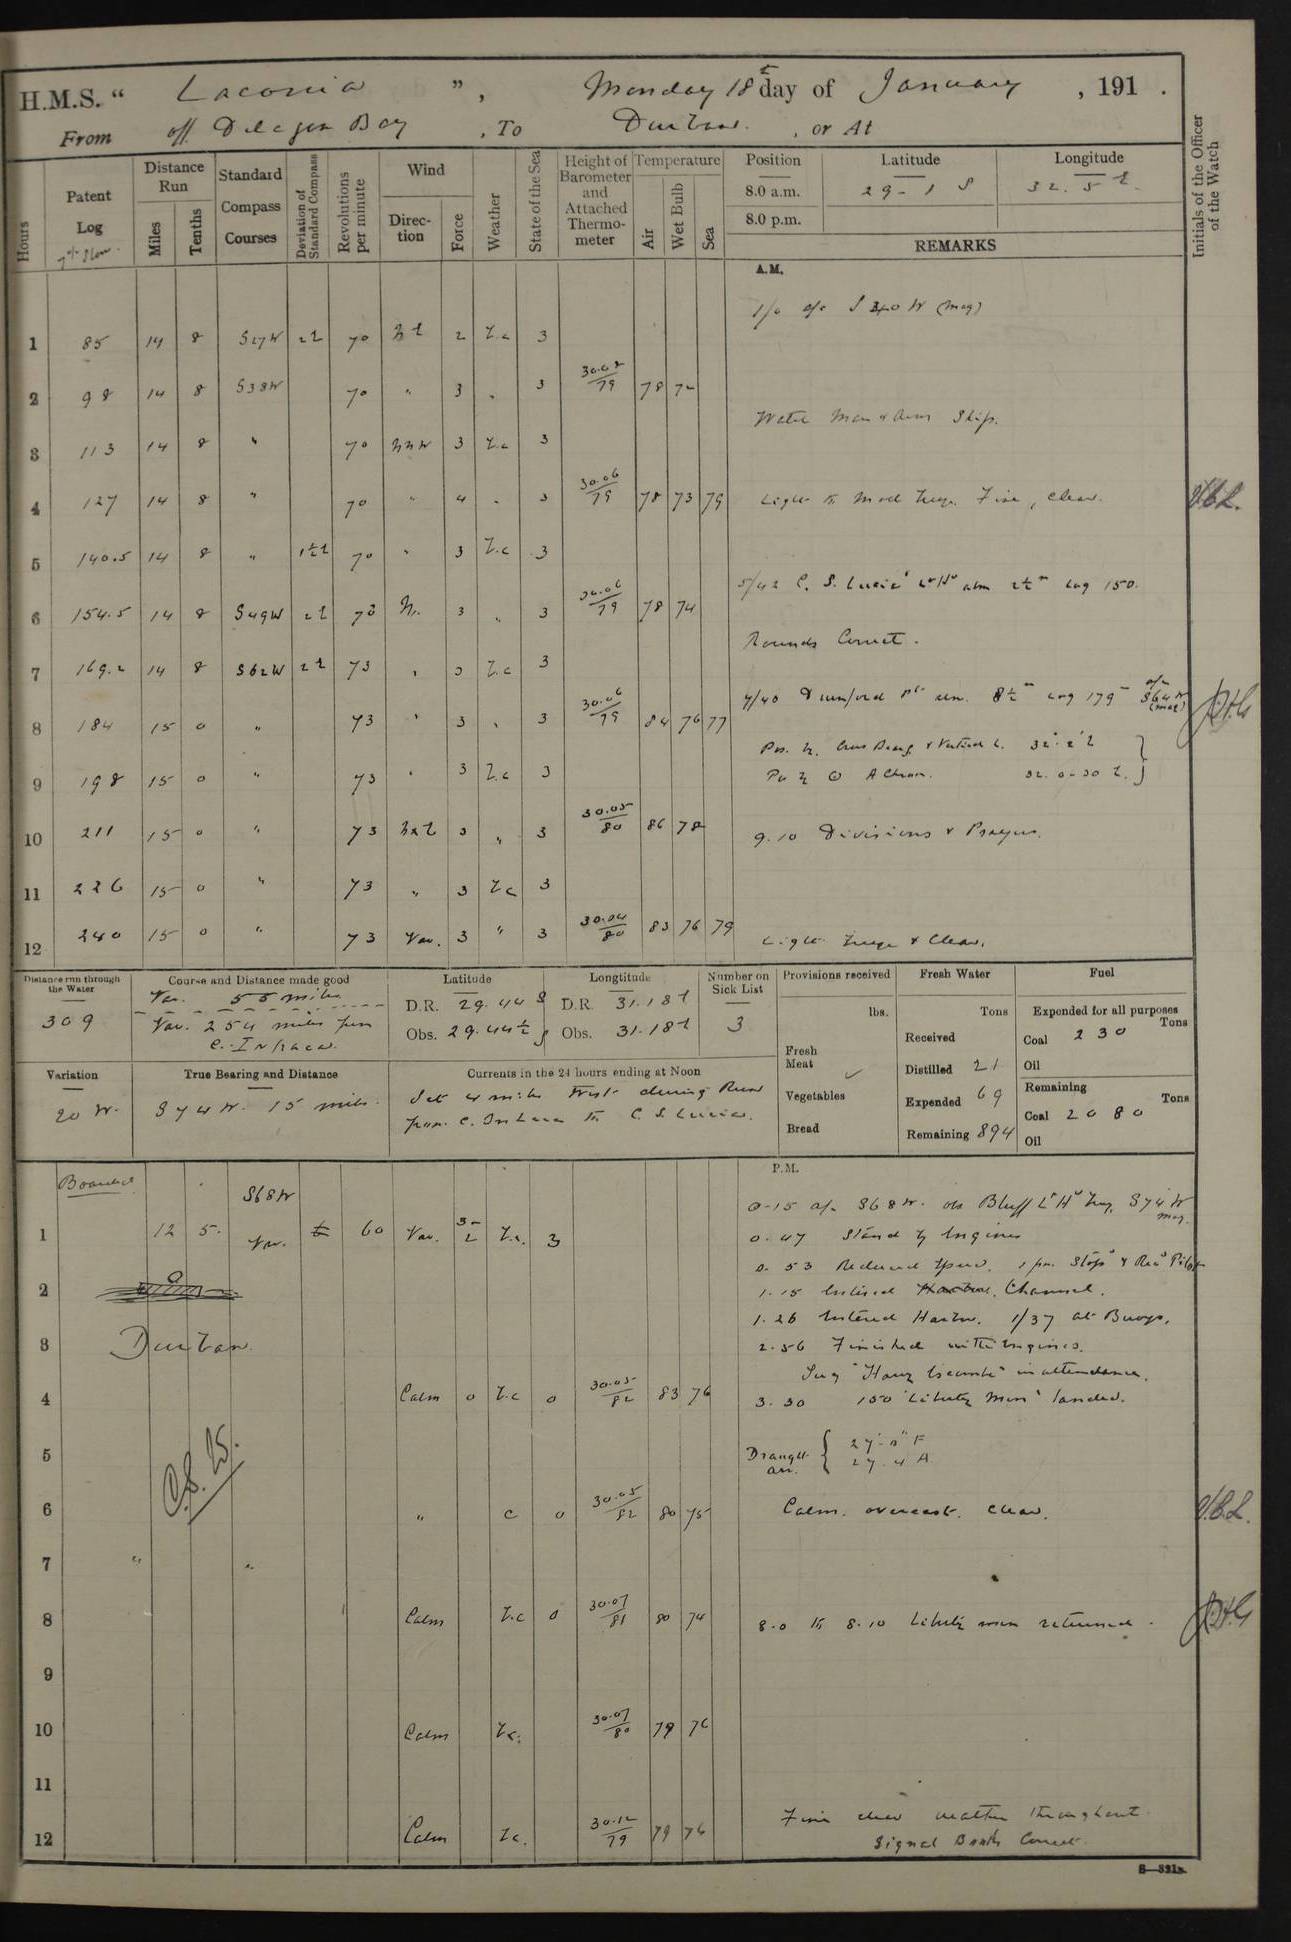 H.M.S. " Laconia ", Monday 18th day of January, 191 .
From off Delagoa Bay, To Durban. , or At
Hours
Patent Log
Distance Run
Miles
Tenths
Standard Compass Courses
Deviation of Standard Compass
Revolutions per minute
Wind
Direction
Force
Weather
State of the Sea
Height of Barometer and Attached Thermometer
Temperature
Air
Wet Bulb
Sea
Position
8.0 a.m.
8.0 p.m.
Latitude
29-1 S
Longitude
32.5 E.
REMARKS
Initials of the Officer of the Watch
A.M.
1 85 14 8 S27W 2E 70 NE 2 b.c 3
2 98 14 8 S38W 70 " 3 " 3 30.07/79 78 72
3 113 14 8 " 70 NNW 3 b.c 3
Light to Mod breeze. Fine, clear.
4 127 14 8 " 70 " 4 " 3 30.06/79 78 73 79
5 140.5 14 8 " 1½E 70 " 3 b.c 3
5/42 C. S. Lucia Lt Ho abm Log 150.
6 154.5 14 8 S49W 2E 73 N. 3 " 3 30.06/79 78 74
Rounds Correct.
7 169.2 14 8 S62W 2E 73 " 3 b.c 3
7/40 Durnford Pt abm. 8½m Log 179 a/c S64W (mag)
8 184 15 0 " 73 " 3 " 3 30.06/79 84 76 77
9 198 15 0 " 73 " 3 b.c 3
10 211 15 0 " 73 NxE 3 " 3 30.05/80 86 78
9.10 Divisions & Prayers.
11 226 15 0 " 73 " 3 b.c 3
12 240 15 0 " 73 Var. 3 " 3 30.04/80 83 76 79
Light breeze & Clear.
Distance run through the Water
309
Course and Distance made good
Var. 55 miles
Var. 254 miles from C. Inhaca.
Latitude
D.R. 29.44 S
Obs. 29.44½ S
Longtitude
D.R. 31.18E
Obs. 31.18E
Number on Sick List
3
Provisions received
lbs.
Fresh Meat
Vegetables
Bread
Fresh Water
Tons
Received
Distilled 21
Expended 69
Remaining 894
Fuel
Expended for all purposes
Tons
Coal 230
Oil
Remaining
Tons
Coal 2080
Oil
Variation
20 W.
True Bearing and Distance
S74W. 15 miles.
Currents in the 24 hours ending at Noon
Set 4 miles West during Run
from C. Inhaca to C. S. Lucia.
P.M.
S68W
0-15 a/c S68W. obs Bluff Lt Ho brg. S74W mag.
1 12 5. Var. 60 Var. 3-2 b.c. 3
0.47 Stand by Engines
0.53 Reduced speed. 1 pm. Stopd & Recd Pilot
2
1.15 Entered Harbour. Channel.
1.26 Entered Harbr. 1/37 at Buoys.
3 Durban.
2.56 Finished with Engines.
Tug "Harry Escombe" in attendance.
4 Calm 0 b.c 0 30.05/82 83 76
3.30 150 Liberty Men landed.
5
Draught arr. { 27'-0" F
27.4 A
C.S. 15.
6 " c 0 30.05/82 80 75
Calm. overcast. clear.
7 " "
8 Calm b.c 0 30.07/81 80 74
8.0 to 8.10 Liberty men returned.
9
10 Calm b.c. 30.07/80 79 76
11
12 Calm b.c. 30.12/79 79 76
Fine clear weather throughout.
Signal Books Correct.